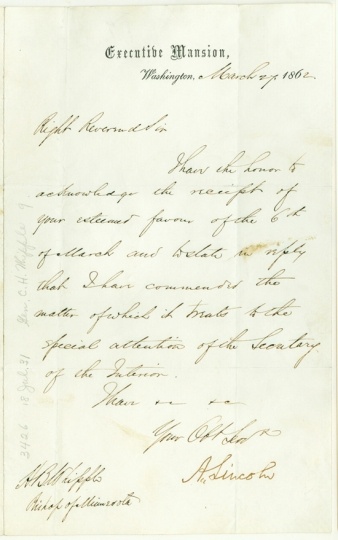 Executive Mansion,
Washington, March 27, 1862.
Right Reverend Sir
I have the honor to
acknowledge the receipt of
your esteemed favour of the 6th
of March and to state in reply
that I have commended the
matter of which it treats to the
special attention of the Secretary
of the Interior.
I have &c &c
Your Obt Servt
A. Lincoln
H B Whipple
Bishop of Minnesota
3426